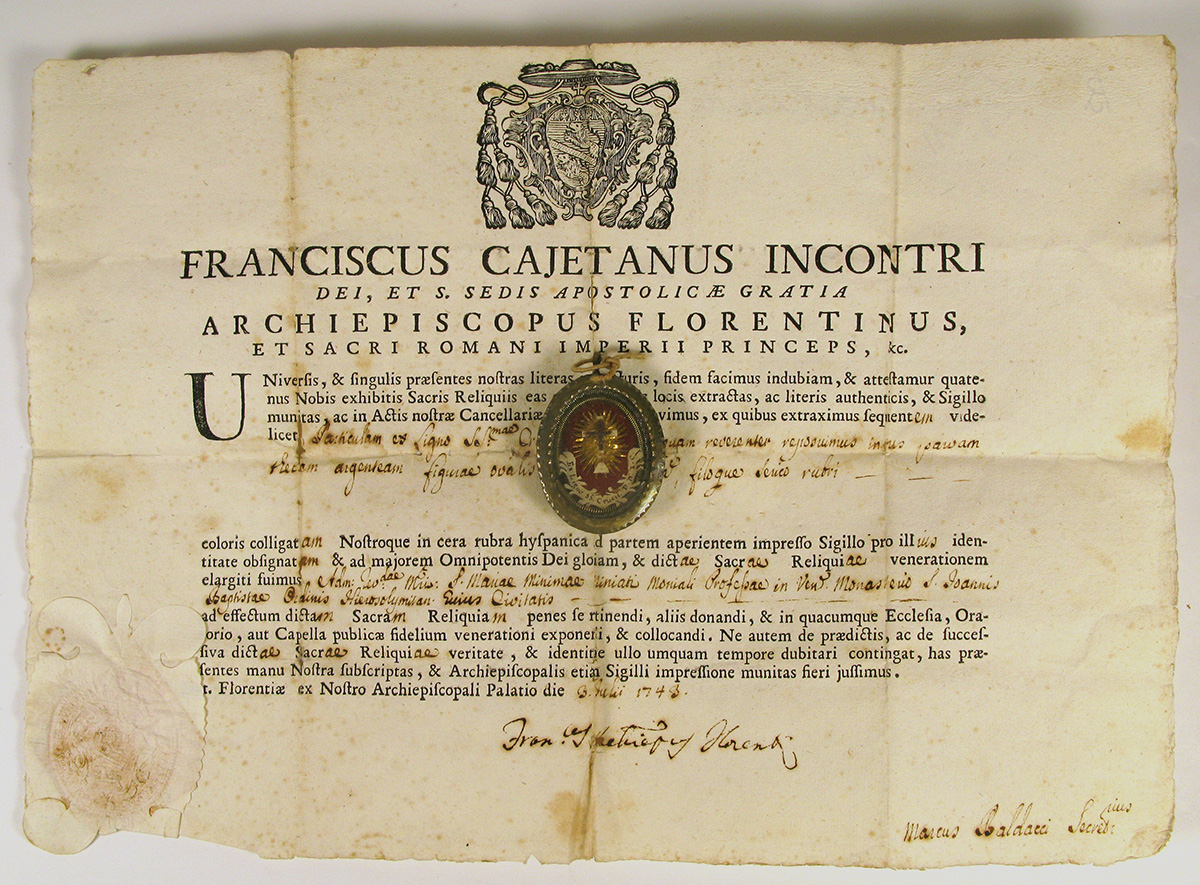 FRANCISCUS CAJETANUS INCONTRI
DEI, ET S. SEDIS APOSTOLICÆ GRATIA
ARCHIEPISCOPUS FLORENTINUS,
ET SACRI ROMANI IMPERII PRINCEPS, &c.
UNiversis, & singulis præsentes nostras literas turis, fidem facimus indubiam, & attestamur quate-
nus Nobis exhibitis Sacris Reliquiis eas locis extractas, ac literis authenticis, & Sigillo
munitas, ac in Actis nostræ Cancellariæ vimus, ex quibus extraximus sequentem vide-
licet Particulam ex Ligno SSmae quam reverenter reposuimus intus parvam
thecam argenteam figurae ovalis filoque serico rubri
coloris colligatam Nostroque in cera rubra hyspanica d partem aperientem impresso Sigillo pro illius iden-
titate obsignatam & ad majorem Omnipotentis Dei gloiam, & dictae Sacrae Reliquiae venerationem
elargiti fuimus Minimae Moniali Professae in Ven. Monasterio S. Joannis
Baptistae Ordinis Hierosolymitan. Civitatis
ad effectum dictam Sacram Reliquiam penes se rtinendi, aliis donandi, & in quacumque Ecclesia, Ora-
orio, aut Capella publicæ fidelium venerationi exponeri, & collocandi. Ne autem de prædictis, ac de succes-
siva dictae Sacrae Reliquiae veritate, & identitie ullo umquam tempore dubitari contingat, has præ-
sentes manu Nostra subscriptas, & Archiepiscopalis etia Sigilli impressione munitas fieri jussimus.
t. Florentiæ ex Nostro Archiepiscopali Palatio die 1748.
Marcus Baldacci Secret